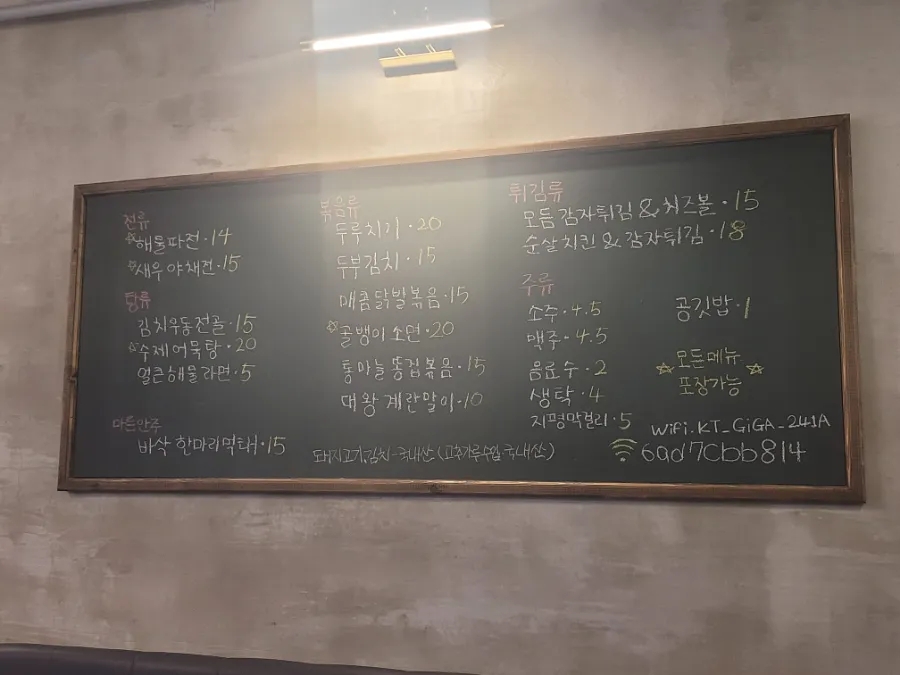 전류
☆해물파전·14
☆새우야채전·15
탕류
김치우동전골·15
☆수제어묵탕·20
얼큰해물라면·5
마른안주
바삭 한마리먹태·15
볶음류
두루치기·20
두부김치·15
매콤닭발볶음·15
☆골뱅이소면·20
통마늘똥집볶음·15
대왕계란말이·10
돼지고기,김치-국내산 (고추가루수입,국내산)
튀김류
모듬감자튀김&치즈볼·15
순살치킨&감자튀김·18
주류
소주·4.5
맥주·4.5
음료수·2
생탁·4
지평막걸리·5
공깃밥·1
☆모든메뉴☆
포장가능
WiFi.KT_GiGA_241A
6ad7cbb814